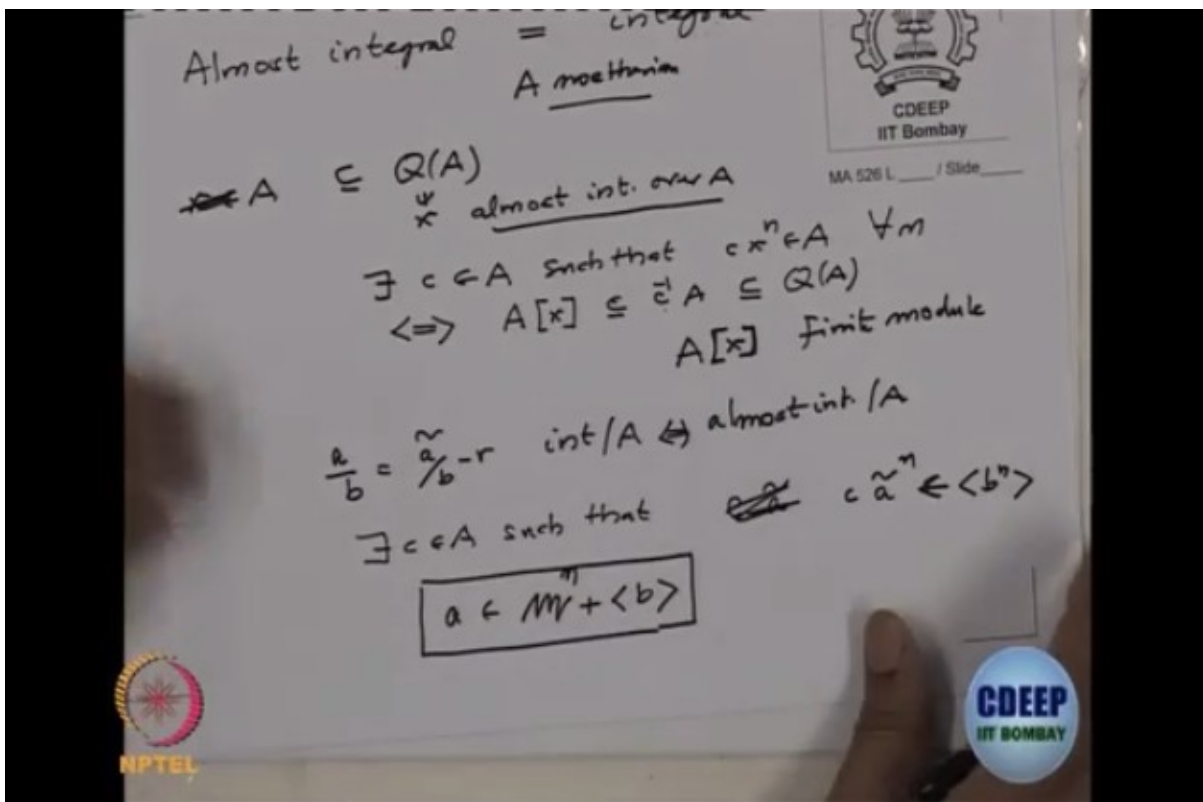 Almost integral = integral
A noetherian
CDEEP
IIT Bombay
MA 526 L ____ / Slide____
A ⊆ Q(A)
x almost int. over A
∃ c ∈ A such that c xⁿ ∈ A ∀n
<=> A[x] ⊆ c⁻¹A ⊆ Q(A)
A[x] finit module
a/b = ã/b - r int/A ⇔ almost int./A
∃ c ∈ A such that c ãⁿ ∈ <bⁿ>
a ∈ 𝔪ⁿ + <b>
NPTEL
CDEEP
IIT BOMBAY